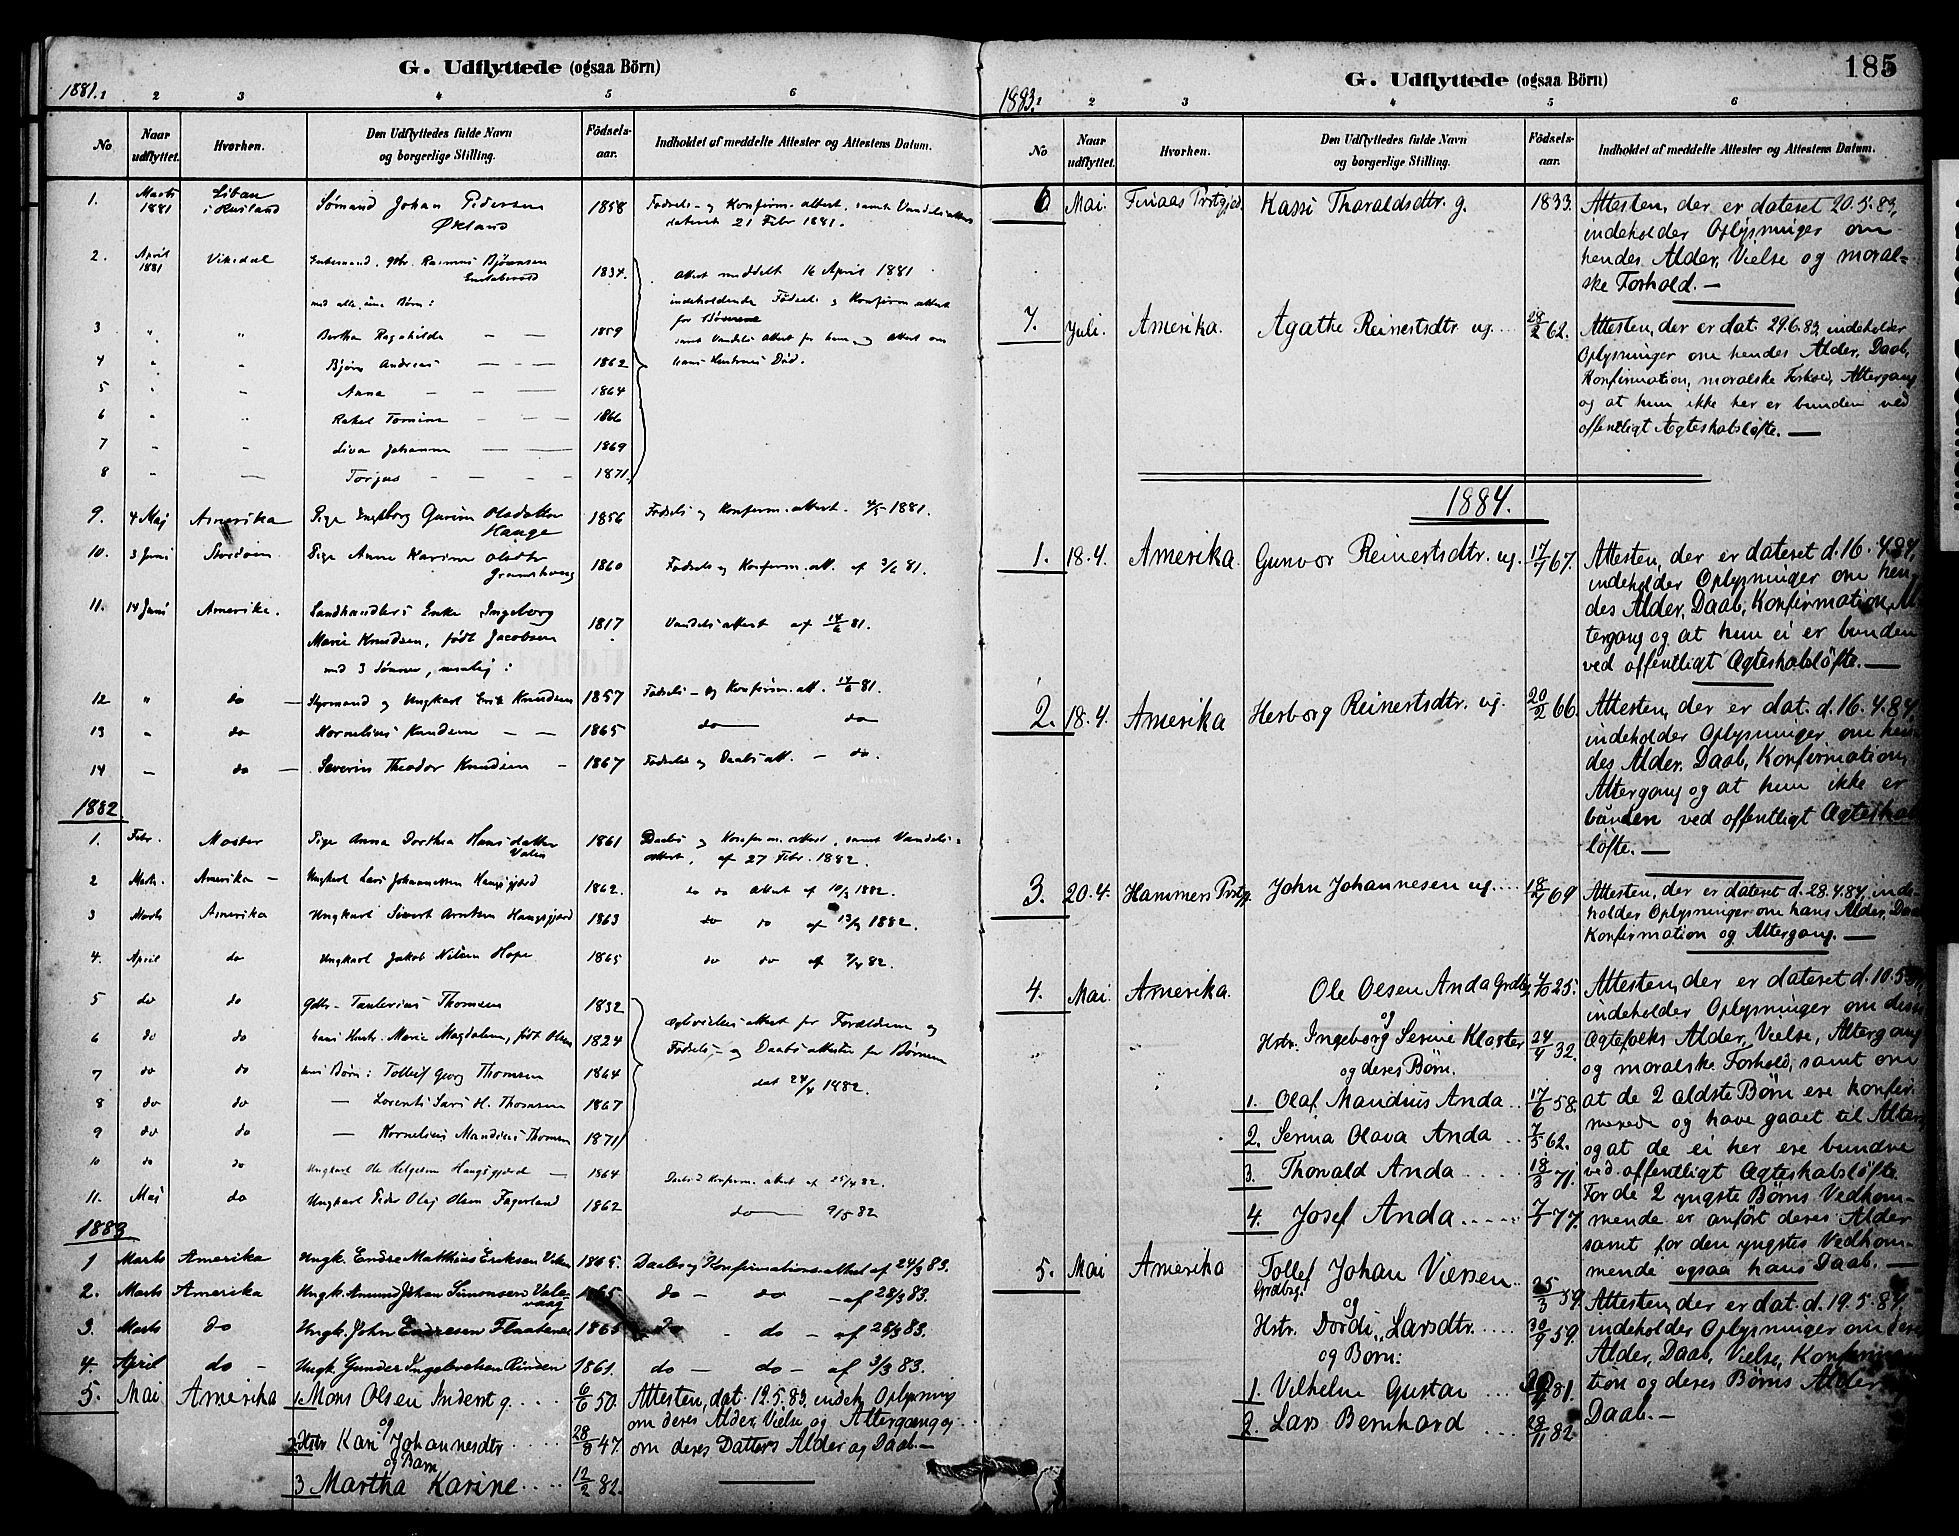 G. Udflyttede (ogsaa Börn)
1881. 1 2 3 4 5 6
No Naar udflyttet. Hvorhen. Den Udflyttedes fulde Navn og borgerlige Stilling. Födsels-aar. Indholdet af meddelte Attester og Attestens Datum.
1. Marts 1881 Liban i Rusland Sømand Johan Pedersen Økland 1858 Fødsels- og Konfirm. attest, samt Vandels attest
dateret 21 Febr 1881.
2. April 1881 Vikedal Enkemand, gbr. Rasmus Bjørnsen 1834. Attest meddelt 16 April 1881
med alle sine Børn: indeholdende Fødsels og Konfirm attest
for Børnene
3 " " Bertha Ragnhilda — — 1859 samt Vandels attest for ham, og attest om
4 " " Bjørn Andreas — — 1862 hans Hustrues Død.
5 " " Anna — — 1864
6 " " Rakel Tomine — 1866
7 " — Liva Johanna — — 1869
8 " — Torgus — — 1871
9. 4 Maj Amerika Pige Ingeborg Gurine Olsdatter Hauge 1856 Fødsels og Konfirm. attest. 4/5 1881.
10. 3 Juni Stordøen Pige Anne Karine Olsdtr 1860 Fødsels og Konfirm. att. af 3/6 81.
11. 14 Juni Amerika. Landhandlers Enke Ingeborg
Marie Knudsen, født Jacobsen 1817 Vandels attest af 14/6 81.
med 3 Sønner, nemlig:
12 " do — Styrmand og Ungkarl Erik Knudsen 1857 Fødsels- og Konfirm. att. 14/6 81.
13 " do Kornelius Knudsen — — 1865 do — do
14 — do — Severin Theodor Knudsen — 1867 Fødsels og Daabs att. — do.
1882.
1. Febr. Moster Pige Anna Dorthea Hansdatter Valen 1861 Daabs og Konfirm. attest, samt Vandels-
attest, af 27 Febr. 1882.
2 Marts. Amerika — Ungkarl Lars Johannessen Haugsgjerd 1862. do do attest af 10/3 1882.
3 Marts Amerika Ungkarl Sivert Arntsen Haugsgjerd 1863 do do af 13/3 1882.
4. April do Ungkarl Jakob Nilsen Hope 1865 do do af 4/4 82.
5 do do Gbr. Taulerius Thomsen 1832
6 do do hans Hustr. Marie Magdalena, født Olsen 1824 Egtevielses attest for Forældrene og
Fødsels,- og Daabs attester for Børnene
7 do do hans Børn: Tollef Georg Thomsen 1864 dat 24/4 1882
8 do do — Lorents Lars H. Thomsen 1867
9 do do — Kornelius Mandius Thomsen 1871
10 do do Ungkarl Ole Helgesen Haugsgjerd — 1864 Daabs & Konfirm. attest af 25/4 82.
11. Maj do Ungkarl Peder Olaj Olsen Fagerland 1862 do — 9/5 82
1883
1 Marts Amerika Ungk. Endre Matthias Eriksen Viken 1865. Daabs og Konfirmationsattest af 24/3 83.
2. Marts Amerika Ungk. Amund Johan Simonsen Vale-vaag 1865 do — do — af 28/3 83.
3. Marts do Ungk. John Endresen Flaatenes 1865 do — do — af 28/3 83.
4. April do — Ungk. Gunder Ingebretsen 1861. do — do — af 3/3 83.
5. Mai Amerika 1. Mons Olsen Inderst g. 6/6 50. Attesten, dat. 12.5.83, indeh. Oplysning
og om deres Alder, Vielse, og Altergang og
2. Hstr Kari Johannesdtr 28/8 47. om deres Datters Alder og Daab. —
og Barn
3 Martha Karine 12/2 82.
185
G. Udflyttede (ogsaa Börn)
1883. 1 2 3 4 5 6
No Naar udflyttet. Hvorhen. Den Udflyttedes fulde Navn og borgerlige Stilling. Födsels-aar. Indholdet af meddelte Attester og Attestens Datum.
6. Mai. Finaas Prstgjed. Kassi Tharaldsdtr. g. 1833. Attesten, der er dateret 20.5.83,
indeholder Oplysninger om
hendes Alder, Vielse og moral-
ske Forhold. —
7. Juli. Amerika. Agathe Reinertsdtr ug. 28/2 62. Attesten, der er dat. 29.6.83, indeholder
Oplysninger om hendes Alder, Daab,
Konfirmation, moralske Forhold, Altergang
og at hun ikke her er bunden ved
offentligt Ægteskabsløfte. —
1884.
1. 18.4. Amerika. Gunvor Reinertsdtr. ug. 17/7 67. Attesten, der er dateret d. 16.4.84,
indeholder Oplysninger om hen-
des Alder, Daab, Konfirmation, Al-
tergang og at hun ei er bunden
ved offentligt Ægteskabsløfte. —
2. 18.4. Amerika Herborg Reinertsdtr. ug. 20/2 66. Attesten, der er dat. d. 16.4.84,
indeholder Oplysninger om hen-
des Alder, Daab, Konfirmation,
Altergang og at hun ikke er
bunden ved offentligt Ægteskabs-
løfte. —
3. 20.4. Hammers Prstgj. John Johannesen ug. 18/4 69 Attesten, der er dateret d. 28.4.84, inde-
holder Oplysninger om hans Alder, Daab
Konfirmation og Altergang. —
4. Mai. Amerika. Ole Olsen Anda Grdbr. 4/10 25. Attesten, der er dateret d. 10.5.84,
og indeholder Oplysninger om disse
" " Hstr. Ingeborg Serine Kloster 24/4 32. Ægtefolks Alder, Vielse, Altergang
og deres Børn. og moralske Forhold, samt om
1. Olaf Mandius Anda 17/6 58. at de 2 ældste Børn ere konfir-
merede og have gaaet til Alters
2. Serina Olava Anda 7/5 62. og at de ei her ere bundne
3. Thorvald Anda 18/3 71. ved offentligt Ægteskabsløfte.
For de 2 yngste Børns Vedkom-
4. Josef Anda 7/7 77. mende er anført deres Alder
samt for den yngstes Vedkom-
mende ogsaa hans Daab. —
5. Mai Amerika Tollef Johan Viersen 25/3 59. Attesten, der er dat. d. 19.5.84,
Grdbrg. og
Hstr. Dordi Larsdtr. 30/9 59. indeholder Oplysninger om deres
og Børn: Alder, Daab, Vielse, Konfirma-
1. Vilhelm Gustav 81. tion og deres Børns Alder og
2. Lars Bernhard 28/11 82. Daab. —